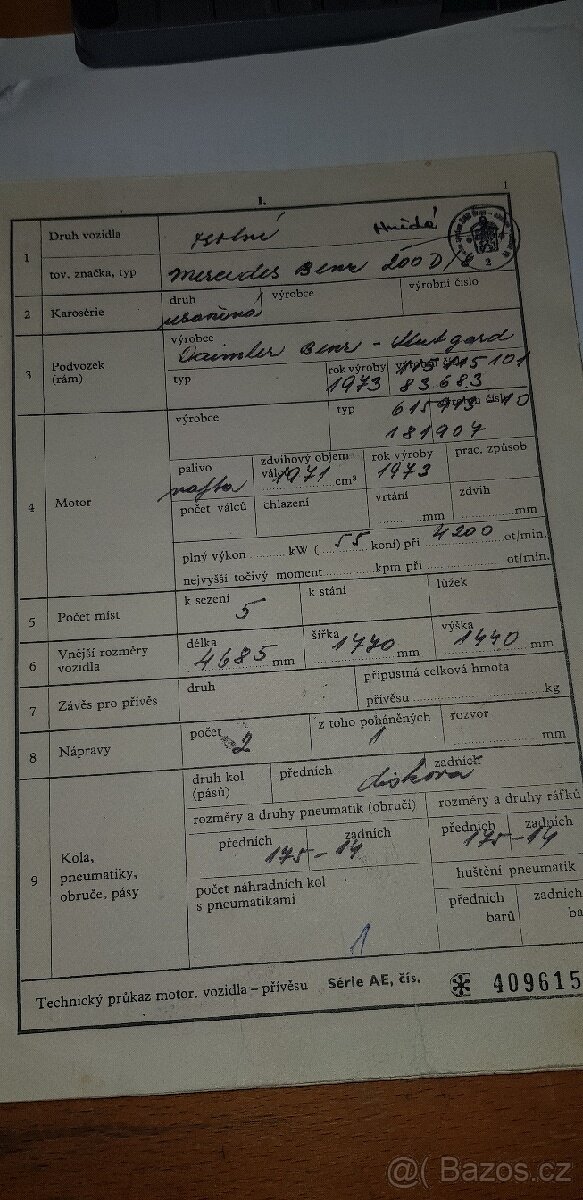 I.
1
1 Druh vozidla osobní Hnědá
tov. značka, typ Mercedes Benz 200 D/8
2 Karosérie druh uzavřená výrobce výrobní číslo
3 Podvozek (rám) výrobce Daimler Benz - Stutgard
typ rok výroby 1973 83683
4 Motor výrobce typ
181904
palivo nafta zdvihový objem válců 1971 cm³ rok výroby 1973 prac. způsob
počet válců chlazení vrtání mm zdvih mm
plný výkon kW ( 55 koní) při 4200 ot/min.
nejvyšší točivý moment kpm při ot/min.
5 Počet míst k sezení 5 k stání lůžek
6 Vnější rozměry vozidla délka 4685 mm šířka 1770 mm výška 1440 mm
7 Závěs pro přívěs druh přípustná celková hmota
přívěsu kg
8 Nápravy počet 2 z toho poháněných 1 rozvor mm
9 Kola, pneumatiky, obruče, pásy
druh kol (pásů) předních zadních disková
rozměry a druhy pneumatik (obručí) rozměry a druhy ráfků
předních zadních předních zadních
175-14 175-14
počet náhradních kol s pneumatikami 1
huštění pneumatik
předních barů zadních
Technický průkaz motor. vozidla – přívěsu Série AE, čís. 409615
@( Bazos.cz